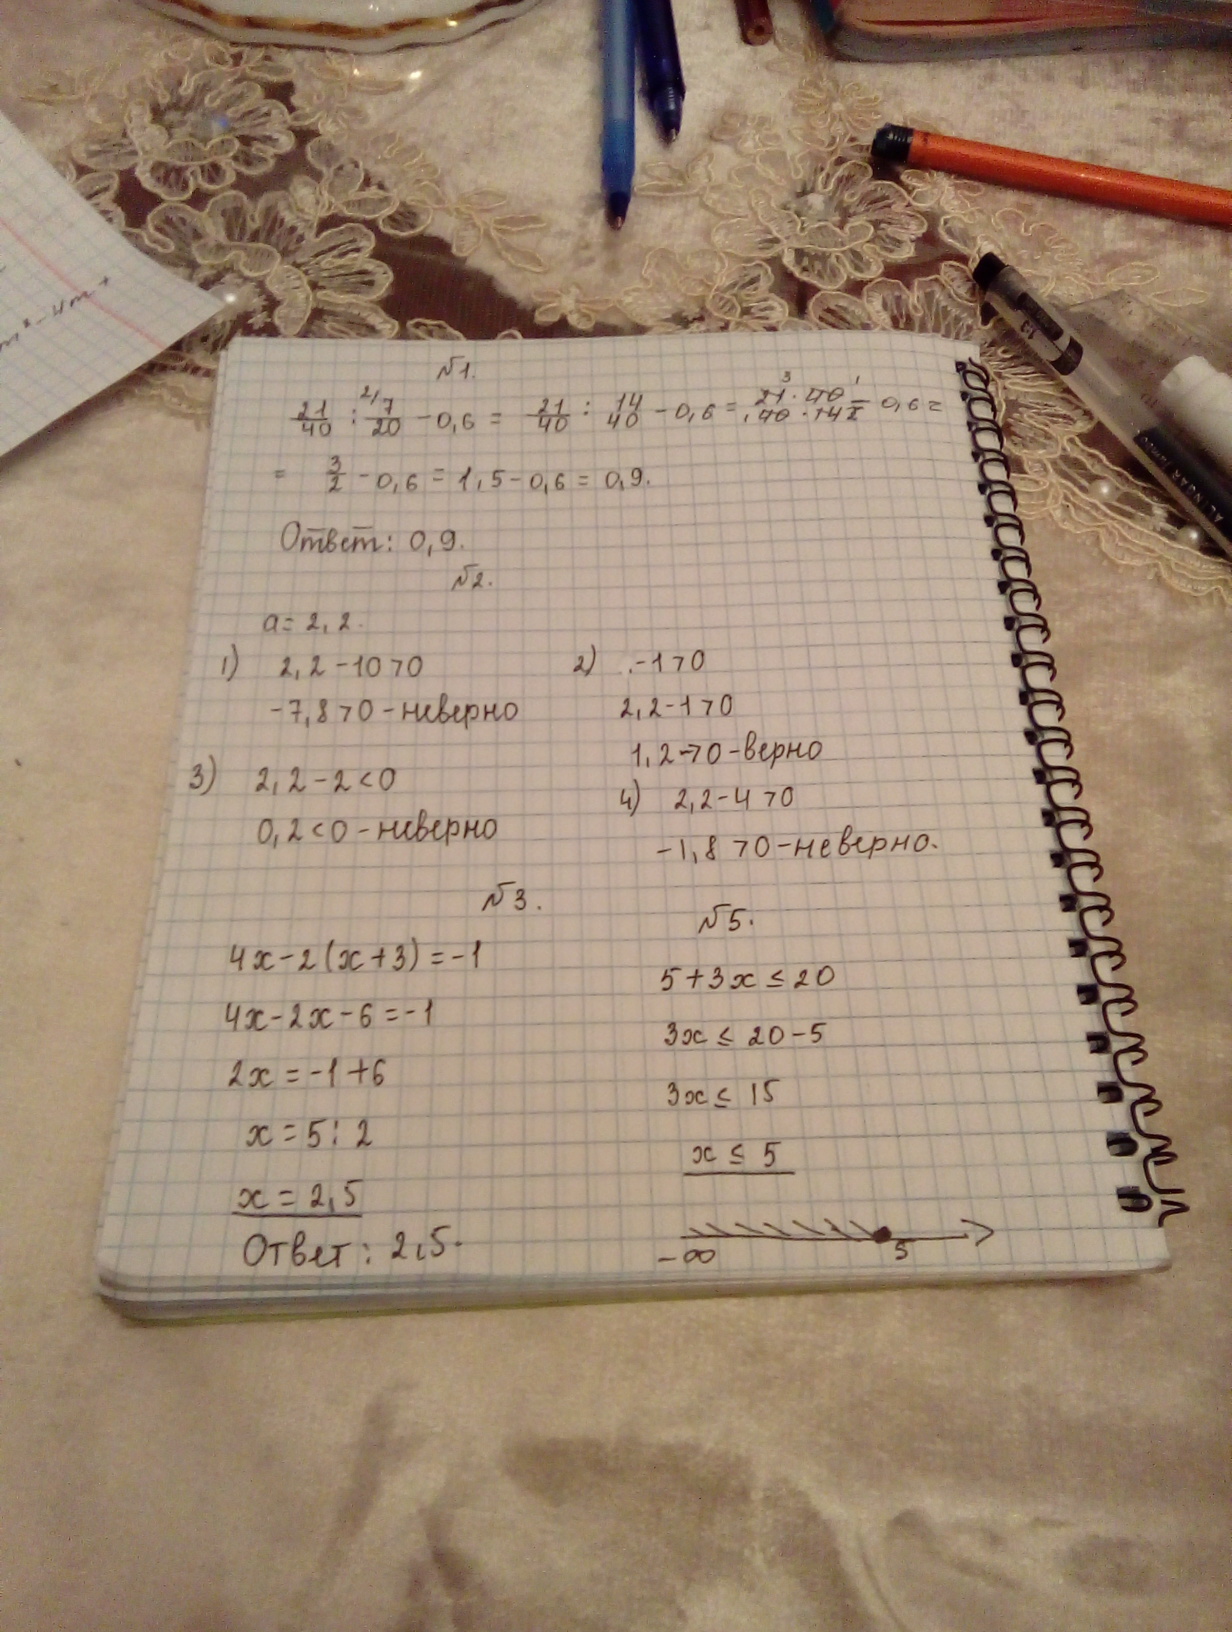 m² - 4m +
№1.
21/40 : 2/ 7/20 - 0,6 = 21/40 : 14/40 - 0,6 = 21 3 · 40 1 / 1 40 · 14 2 - 0,6 =
= 3/2 - 0,6 = 1,5 - 0,6 = 0,9.
Ответ: 0,9.
№2.
a = 2,2.
1) 2,2 - 10 > 0
-7,8 > 0 - неверно
2) . - 1 > 0
2,2 - 1 > 0
1,2 > 0 - верно
3) 2,2 - 2 < 0
0,2 < 0 - неверно
4) 2,2 - 4 > 0
-1,8 > 0 - неверно.
№3.
4x - 2(x + 3) = -1
4x - 2x - 6 = -1
2x = -1 + 6
x = 5 : 2
x = 2,5
Ответ: 2,5.
№5.
5 + 3x ≤ 20
3x ≤ 20 - 5
3x ≤ 15
x ≤ 5
-∞ 5